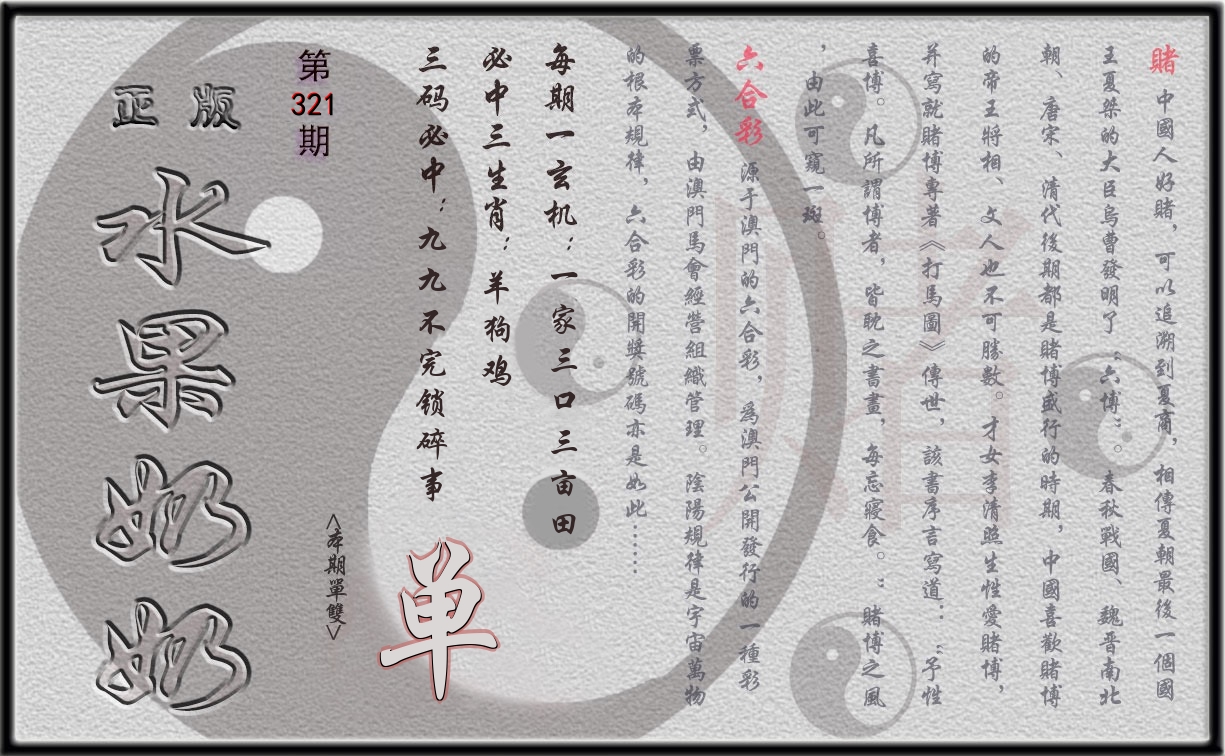 賭 中國人好賭，可以追溯到夏商，相傳夏朝最後一個國
王夏桀的大臣烏曹發明了“六博”。春秋戰國、魏晉南北
朝、唐宋、清代後期都是賭博盛行的時期，中國喜歡賭博
的帝王將相、文人也不可勝數。才女李清照生性愛賭博，
并寫就賭博專著《打馬圖》傳世，該書序言寫道：“予性
喜博。凡所謂博者，皆耽之晝晝，每忘寢食。”賭博之風
，由此可窺一斑。
六合彩 源于澳門的六合彩，為澳門公開發行的一種彩
票方式，由澳門馬會經營組織管理。陰陽規律是宇宙萬物
的根本規律，六合彩的開獎號碼亦是如此……
每期一玄机：一家三口三亩田
必中三生肖：羊狗鸡
三码必中：九九不完锁碎事
單
<本期單雙>
第
321
期
正版
水果奶奶
赌